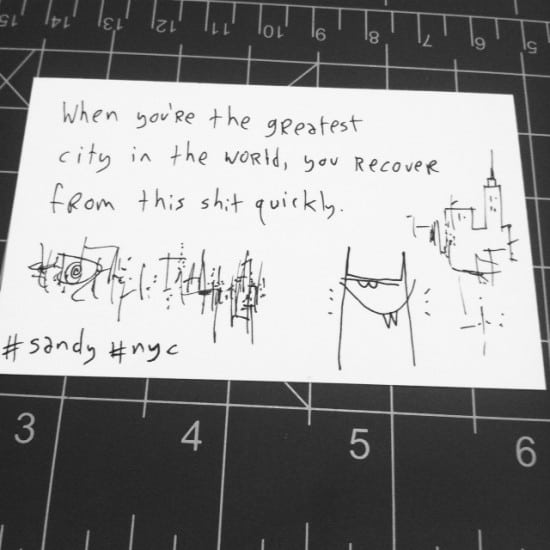 15 14 13 12 11 10 9 8 7 6 5
When you're the greatest
city in the world, you recover
from this shit quickly.
#sandy #nyc
3 4 5 6